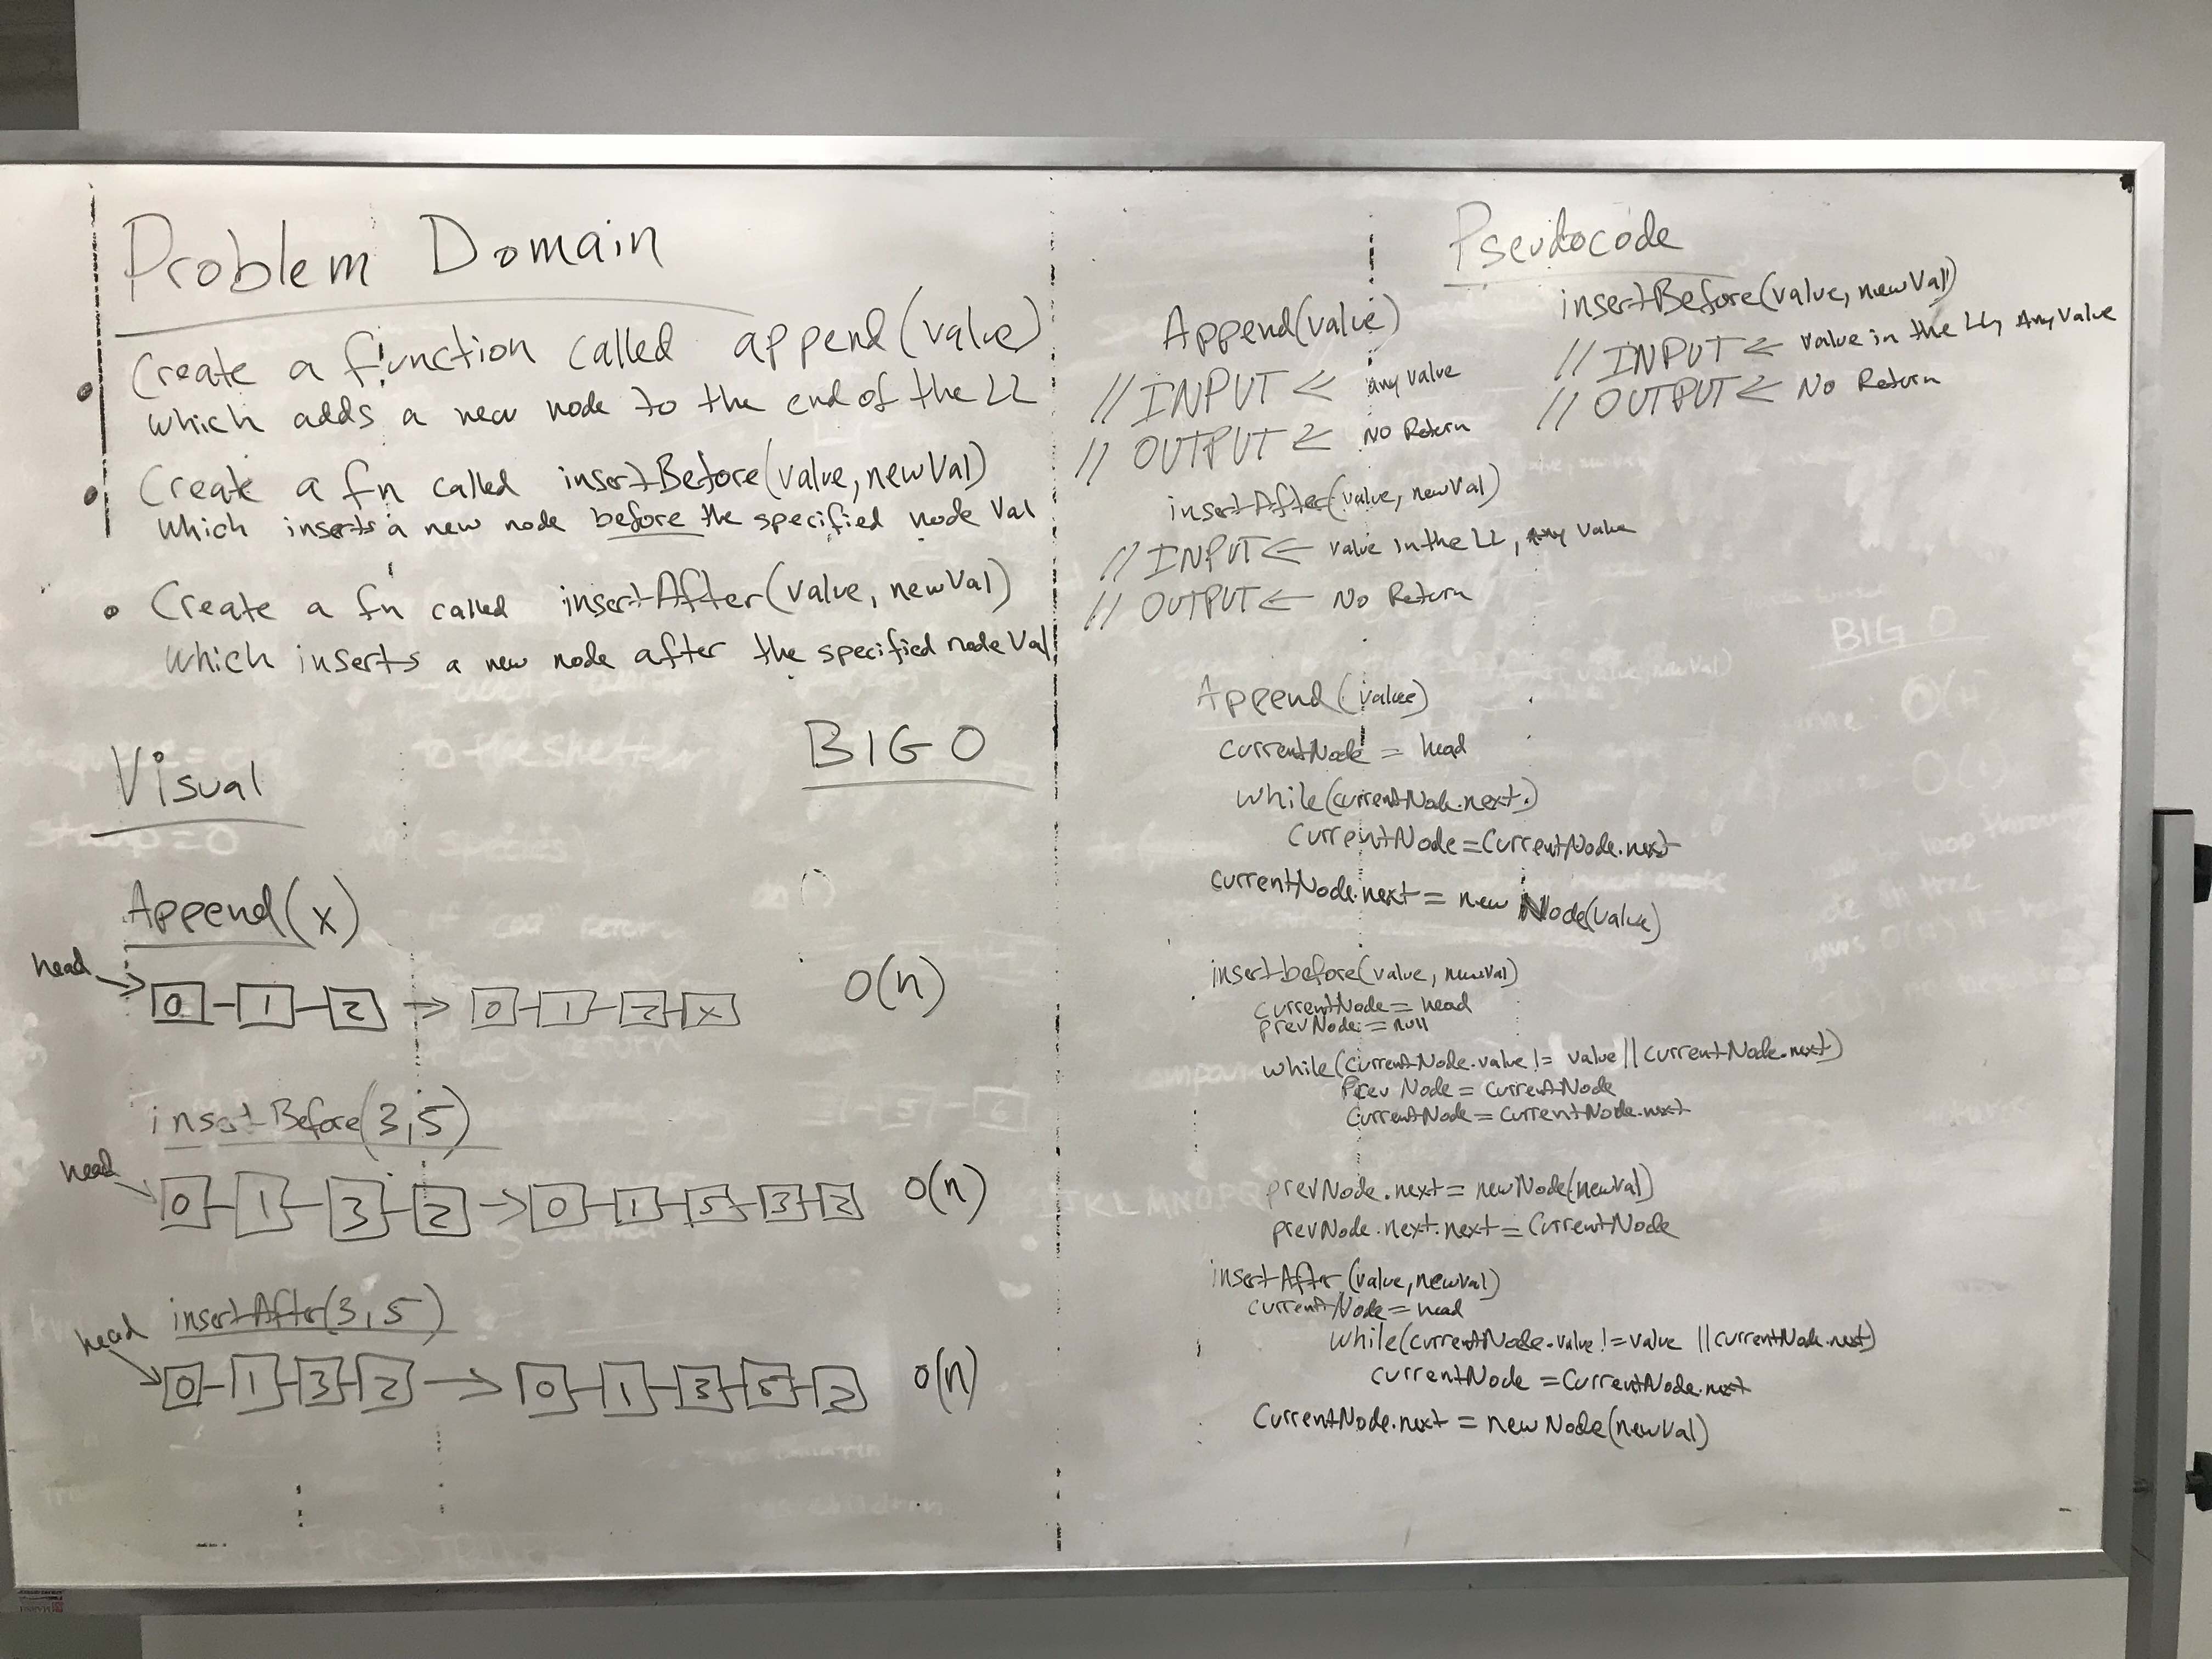 Problem Domain
Create a function called append(value)
which adds a new node to the end of the LL
Create a fn called insertBefore(value, newVal)
which inserts a new node before the specified node Val
Create a fn called insertAfter(value, newVal)
which inserts a new node after the specified node Val
Visual
BIG O
Append(x)
head
0 1 2 → 0 1 2 x
O(n)
insertBefore(3,5)
head
0 1 3 2 → 0 1 5 3 2
O(n)
insertAfter(3,5)
head
0 1 3 2 → 0 1 3 5 2
O(n)
Pseudocode
Append(value)
// INPUT ← any value
// OUTPUT ← NO Return
insertBefore(value, newVal)
// INPUT ← value in the LL, Any Value
// OUTPUT ← No Return
insertAfter(value, newVal)
// INPUT ← value in the LL, Any Value
// OUTPUT ← No Return
Append(value)
currentNode = head
while(currentNode.next)
currentNode = CurrentNode.next
currentNode.next = new Node(value)
insertbefore(value, newVal)
currentNode = head
prevNode = null
while(currentNode.value != value || currentNode.next)
Prev Node = currentNode
CurrentNode = CurrentNode.next
prevNode.next = newNode(newVal)
prevNode.next.next = CurrentNode
insertAfter(value, newVal)
currentNode = head
while(currentNode.value != value || currentNode.next)
currentNode = CurrentNode.next
CurrentNode.next = new Node(newVal)
BIG O
to the shelter
JKLMNOPQ